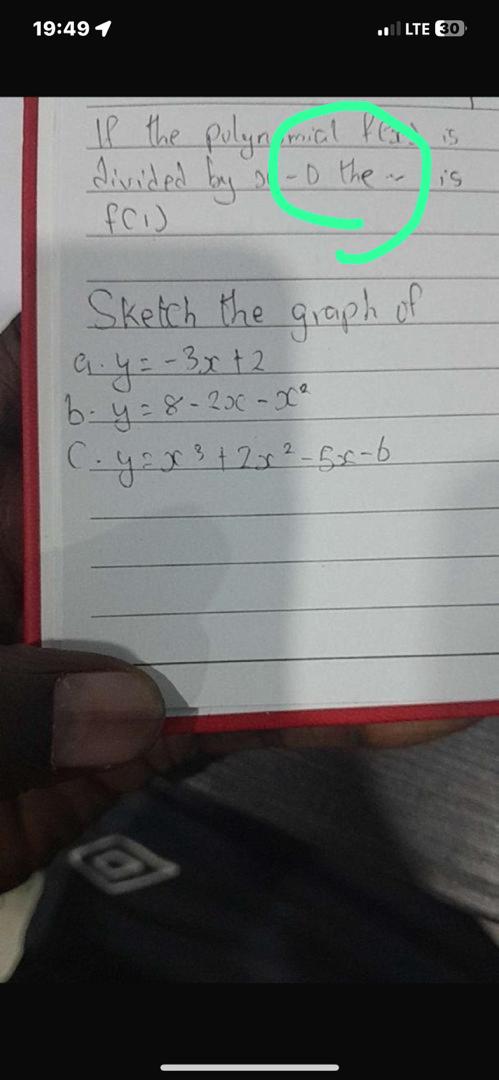 19:49
LTE 30
If the polynomial f(x) is
divided by x - the is
f(1)
Sketch the graph of
a. y = -3x + 2
b. y = 8 - 2x - x²
C. y = x³ + 2x² - 5x - 6